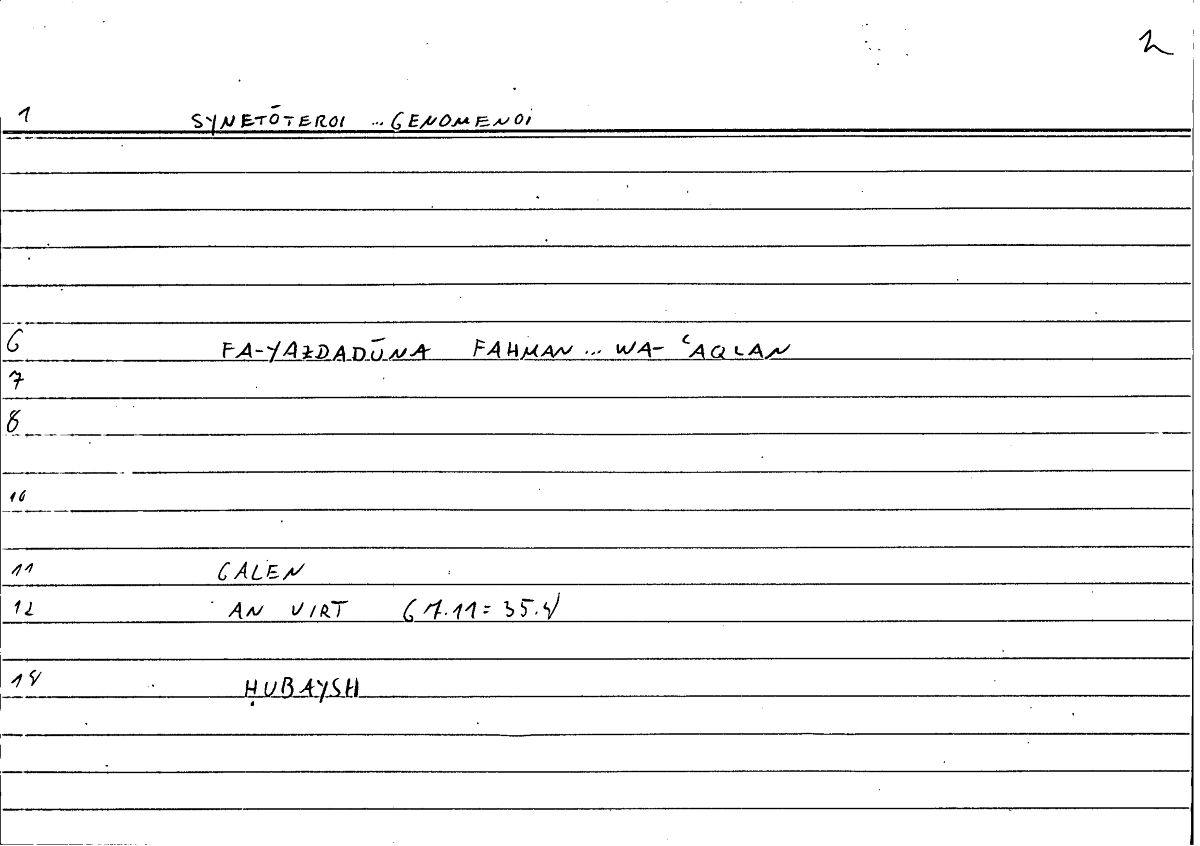 2
1 SYNETŌTEROI ... GENOMENOI
6 FA-YAZDADŪNA FAHMAN ... WA- ʿAQLAN
7
8
10
11 GALEN
12 AN VIRT 67.11 = 35.4
14 ḤUBAYSH